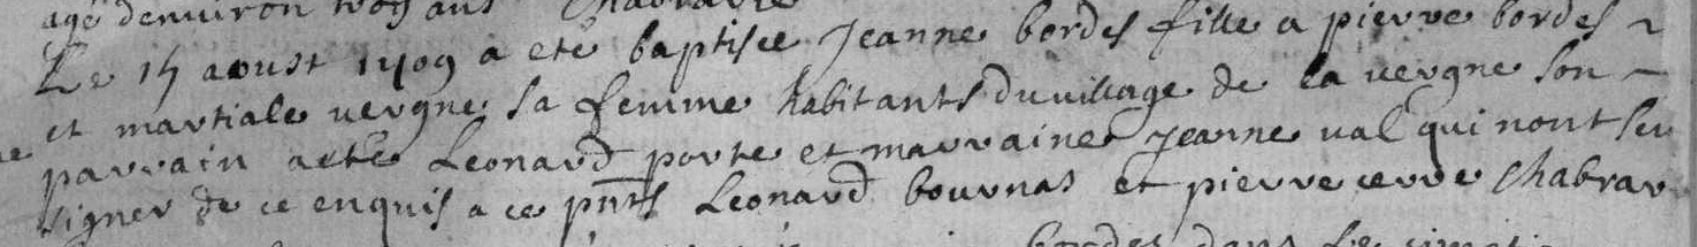 agé denuiron trois ans Chabravie
Le 15 aoust 1709 a eté baptisee Jeanne bordes fille a pierre bordes
et martiale vergne sa femme habitants du village de la vergne son
parrain a eté Leonard porte et marraine jeanne val qui nont seu
signer de ce enquis a ce pnts Leonard bournas et pierre cerve Chabrav
bordes dans